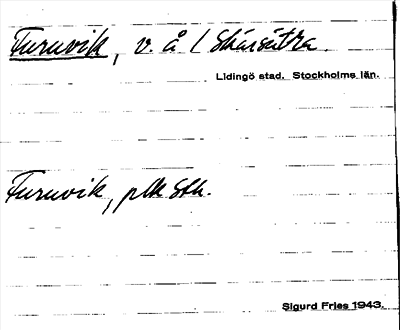 Furuvik, v. å / Skärsätra.
Lidingö stad. Stockholms län.
Furuvik, plk Sth.
Sigurd Fries 1943.